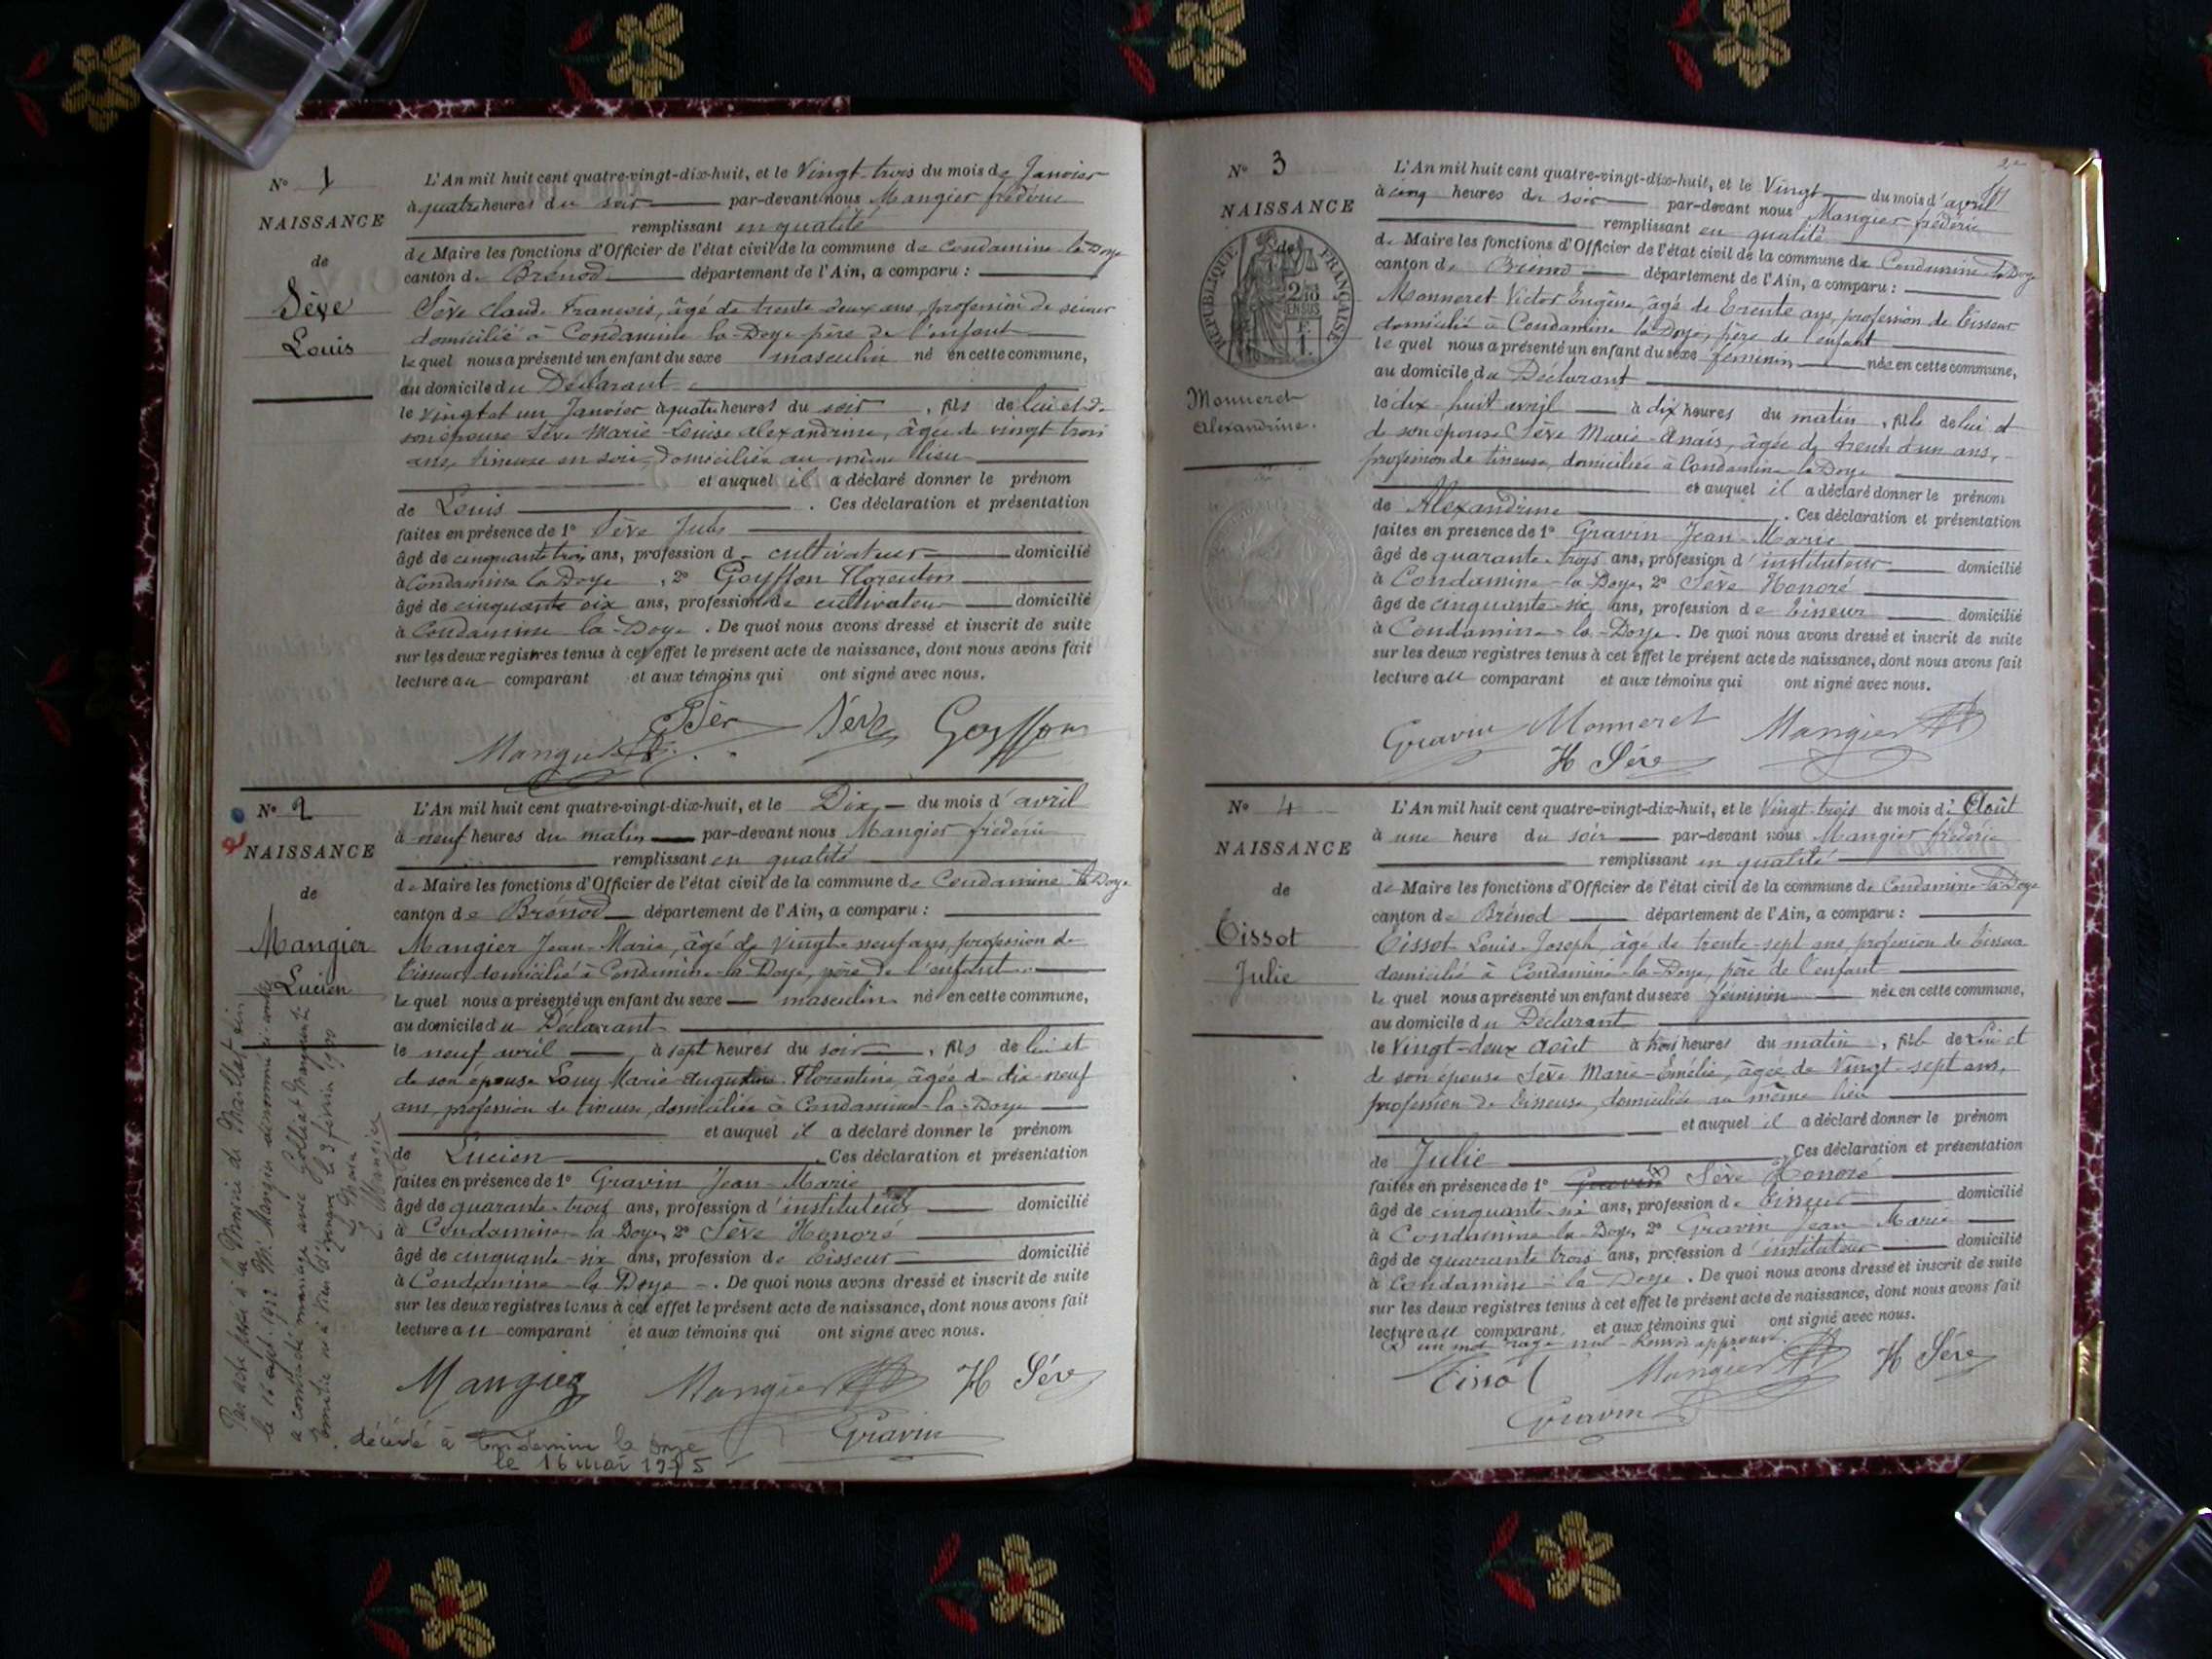 N° 1
NAISSANCE
de
Sève
Louis
L'An mil huit cent quatre-vingt-dix-huit, et le Vingt-trois du mois de Janvier
à quatre heures du soir par-devant nous Mangier frédéric
remplissant en qualité
de Maire les fonctions d'Officier de l'état civil de la commune de Condamine la Doye
canton de Brénod département de l'Ain, a comparu :
Sève Claude François, âgé de trente deux ans, profession de
domicilié à Condamine la-Doye père de l'enfant
lequel nous a présenté un enfant du sexe masculin né en cette commune,
au domicile du Déclarant
le vingt et un Janvier à quatre heures du soir, fils de lui et de
son épouse Sève Marie-Louise Alexandrine, âgée de vingt trois
ans, tisseuse en soie, domiciliée au même lieu
et auquel il a déclaré donner le prénom
de Louis . Ces déclaration et présentation
faites en présence de 1° Sève Jules
âgé de cinquante trois ans, profession de cultivateur domicilié
à Condamine la Doye, 2° Goyffon Florentin
âgé de cinquante six ans, profession de cultivateur domicilié
à Condamine la-Doye. De quoi nous avons dressé et inscrit de suite
sur les deux registres tenus à cet effet le présent acte de naissance, dont nous avons fait
lecture au comparant et aux témoins qui ont signé avec nous.
Sève Goyffon
Mangier
N° 2
NAISSANCE
de
Mangier
Lucien
L'An mil huit cent quatre-vingt-dix-huit, et le Dix du mois d'avril
à neuf heures du matin par-devant nous Mangier frédéric
remplissant en qualité
de Maire les fonctions d'Officier de l'état civil de la commune de Condamine la Doye
canton de Brénod département de l'Ain, a comparu :
Mangier Jean-Marie, âgé de vingt-neuf ans, profession de
tisseur, domicilié à Condamine-la-Doye, père de l'enfant
lequel nous a présenté un enfant du sexe masculin né en cette commune,
au domicile du Déclarant
le neuf avril, à sept heures du soir, fils de lui et
de son épouse Louy Marie-Augustine Florentine, âgée de dix-neuf
ans, profession de tisseuse, domiciliée à Condamine-la-Doye
et auquel il a déclaré donner le prénom
de Lucien . Ces déclaration et présentation
faites en présence de 1° Gravin Jean-Marie
âgé de quarante-trois ans, profession d'instituteur domicilié
à Condamine-la Doye, 2° Sève Honoré
âgé de cinquante-six ans, profession de tisseur domicilié
à Condamine-la Doye. De quoi nous avons dressé et inscrit de suite
sur les deux registres tenus à cet effet le présent acte de naissance, dont nous avons fait
lecture au comparant et aux témoins qui ont signé avec nous.
Mangier Mangier H Sève
Gravin
Par acte passé à la Mairie de
le 16 sept. 1922 Mr Mangier dénommé ci-contre
a contracté mariage avec Golliat Marguerite
Emilie née à le 3 février 1900
Le Maire
L. Mangier
décédé à Condamine la Doye
le 16 mai 1975
N° 3
NAISSANCE
de
RÉPUBLIQUE FRANÇAISE
2/10 EN SUS
Monneret
Alexandrine.
L'An mil huit cent quatre-vingt-dix-huit, et le Vingt du mois d'avril
à cinq heures du soir par-devant nous Mangier frédéric
remplissant en qualité
de Maire les fonctions d'Officier de l'état civil de la commune de Condamine la Doye
canton de Brénod département de l'Ain, a comparu :
Monneret Victor Eugène, âgé de trente ans, profession de tisseur
domicilié à Condamine la-Doye, père de l'enfant
lequel nous a présenté un enfant du sexe féminin née en cette commune,
au domicile du Déclarant
le dix-huit avril à dix heures du matin, fille de lui et
de son épouse Sève Marie-Anaïs, âgée de trente d'un ans,
profession de tisseuse, domiciliée à Condamine-la-Doye
et auquel il a déclaré donner le prénom
de Alexandrine . Ces déclaration et présentation
faites en présence de 1° Gravin Jean-Marie
âgé de quarante-trois ans, profession d'instituteur domicilié
à Condamine-la-Doye, 2° Sève Honoré
âgé de cinquante-six ans, profession de tisseur domicilié
à Condamine-la-Doye. De quoi nous avons dressé et inscrit de suite
sur les deux registres tenus à cet effet le présent acte de naissance, dont nous avons fait
lecture au comparant et aux témoins qui ont signé avec nous.
Gravin Monneret Mangier
H Sève
N° 4
NAISSANCE
de
Tissot
Julie
L'An mil huit cent quatre-vingt-dix-huit, et le Vingt-trois du mois d'Août
à une heure du soir par-devant nous Mangier frédéric
remplissant en qualité
de Maire les fonctions d'Officier de l'état civil de la commune de Condamine-la-Doye
canton de Brénod département de l'Ain, a comparu :
Tissot Louis-Joseph, âgé de trente-sept ans, profession de tisseur
domicilié à Condamine-la-Doye, père de l'enfant
lequel nous a présenté un enfant du sexe féminin née en cette commune,
au domicile du Déclarant
le Vingt-deux Août à trois heures du matin, fille de Lui et
de son épouse Sève Marie-Emélie, âgée de Vingt-sept ans,
profession de tisseuse, domiciliée au même lieu
et auquel il a déclaré donner le prénom
de Julie Ces déclaration et présentation
faites en présence de 1° Gravin Sève Honoré
âgé de cinquante-six ans, profession de tisseur domicilié
à Condamine-la Doye, 2° Gravin Jean-Marie
âgé de quarante trois ans, profession d'instituteur domicilié
à Condamine-la Doye. De quoi nous avons dressé et inscrit de suite
sur les deux registres tenus à cet effet le présent acte de naissance, dont nous avons fait
lecture au comparant et aux témoins qui ont signé avec nous.
un mot rayé nul - Renvoi approuvé.
Tissot Mangier H Sève
Gravin